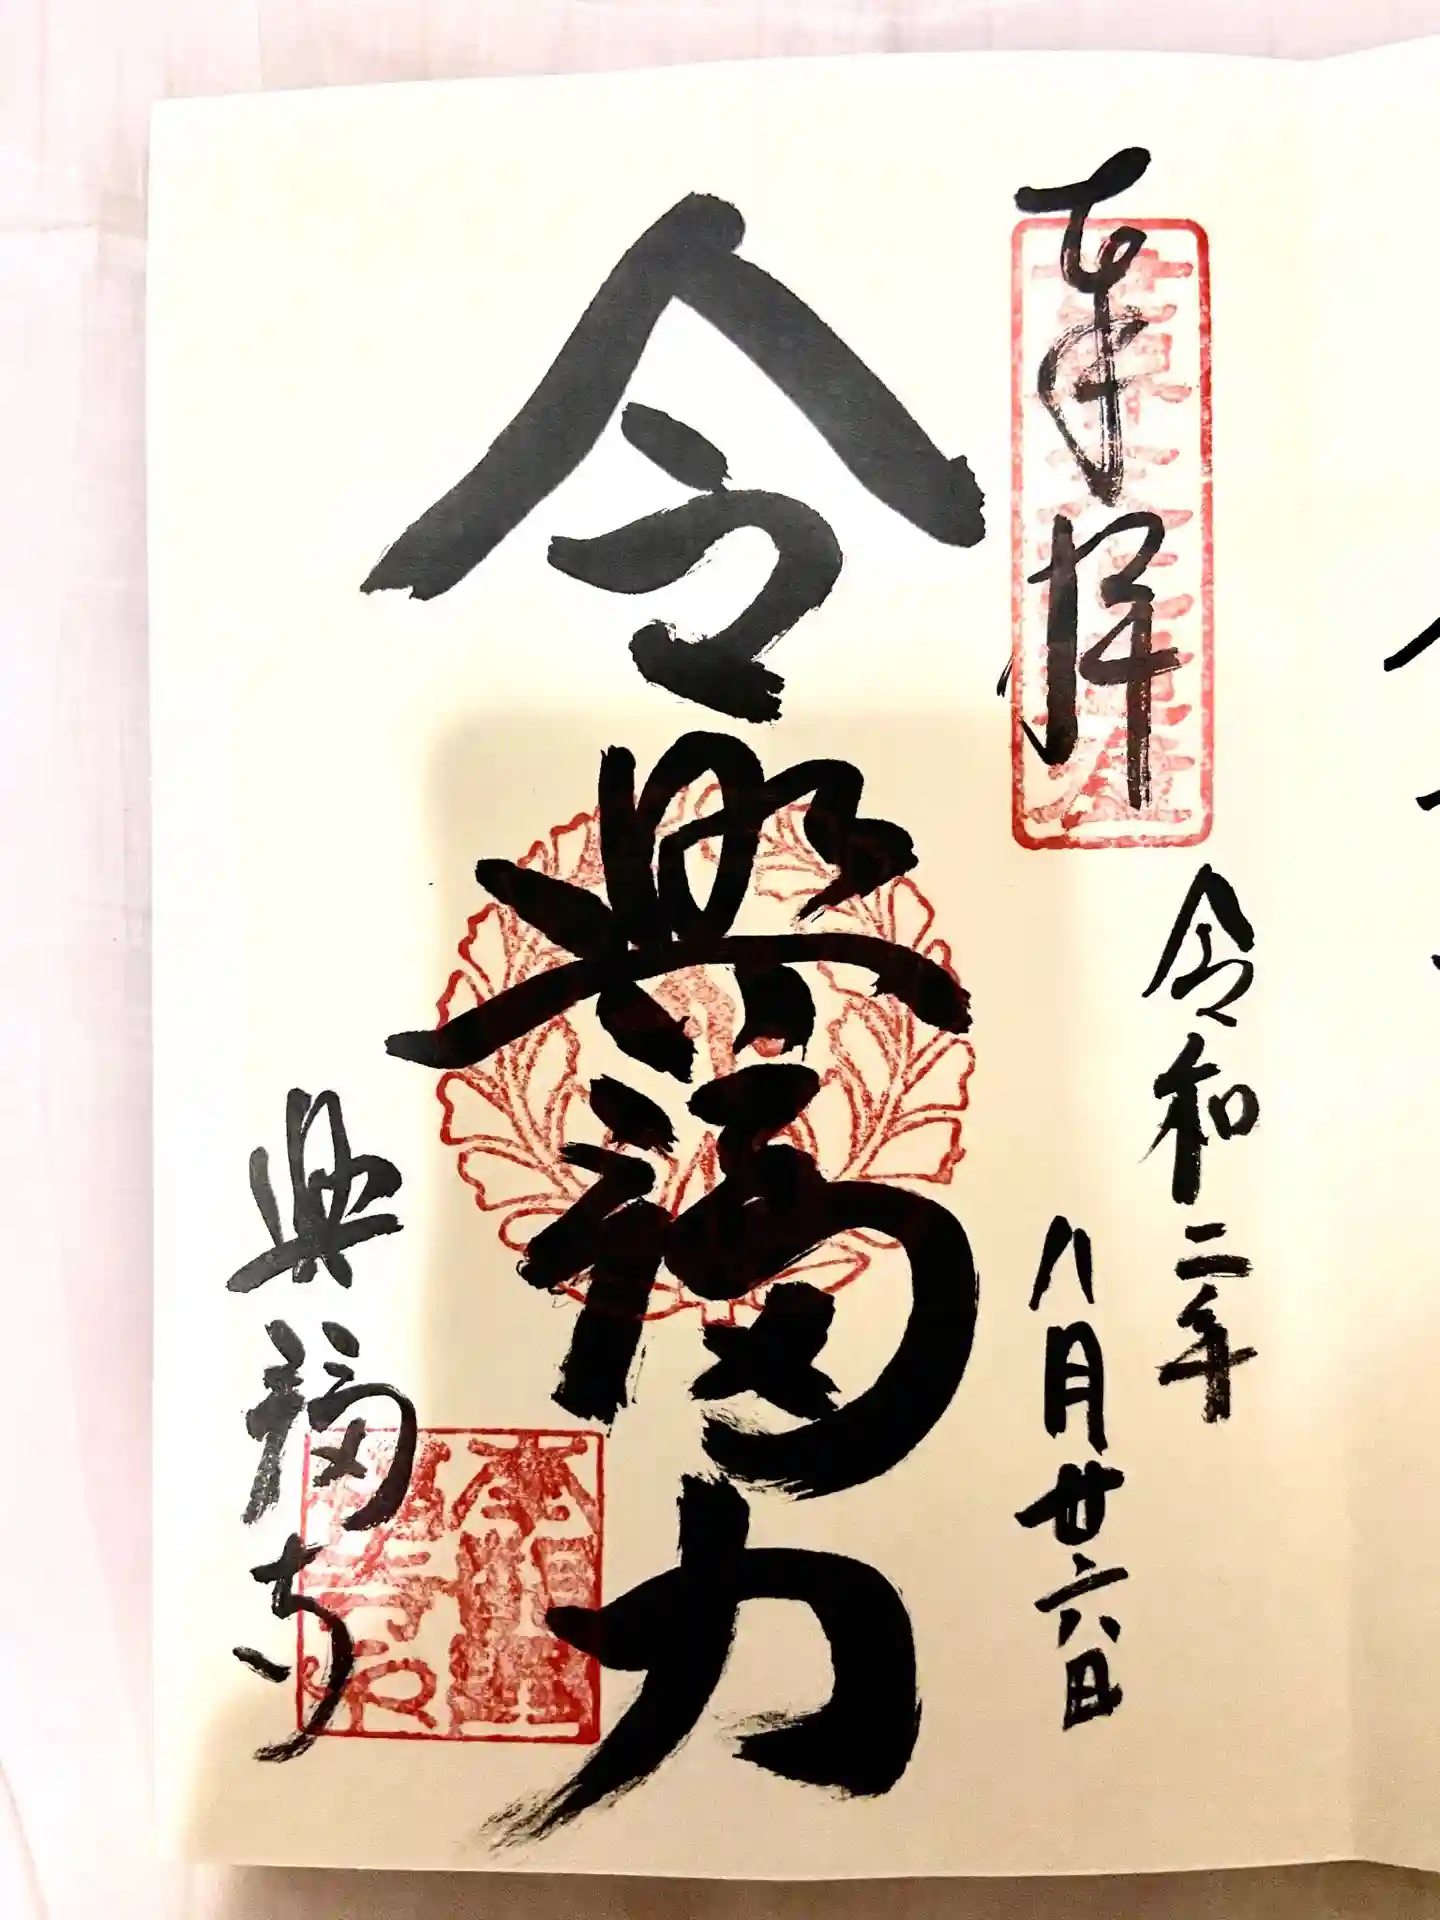 奉拝
令和二年
八月廿六日
令興福力
興福寺